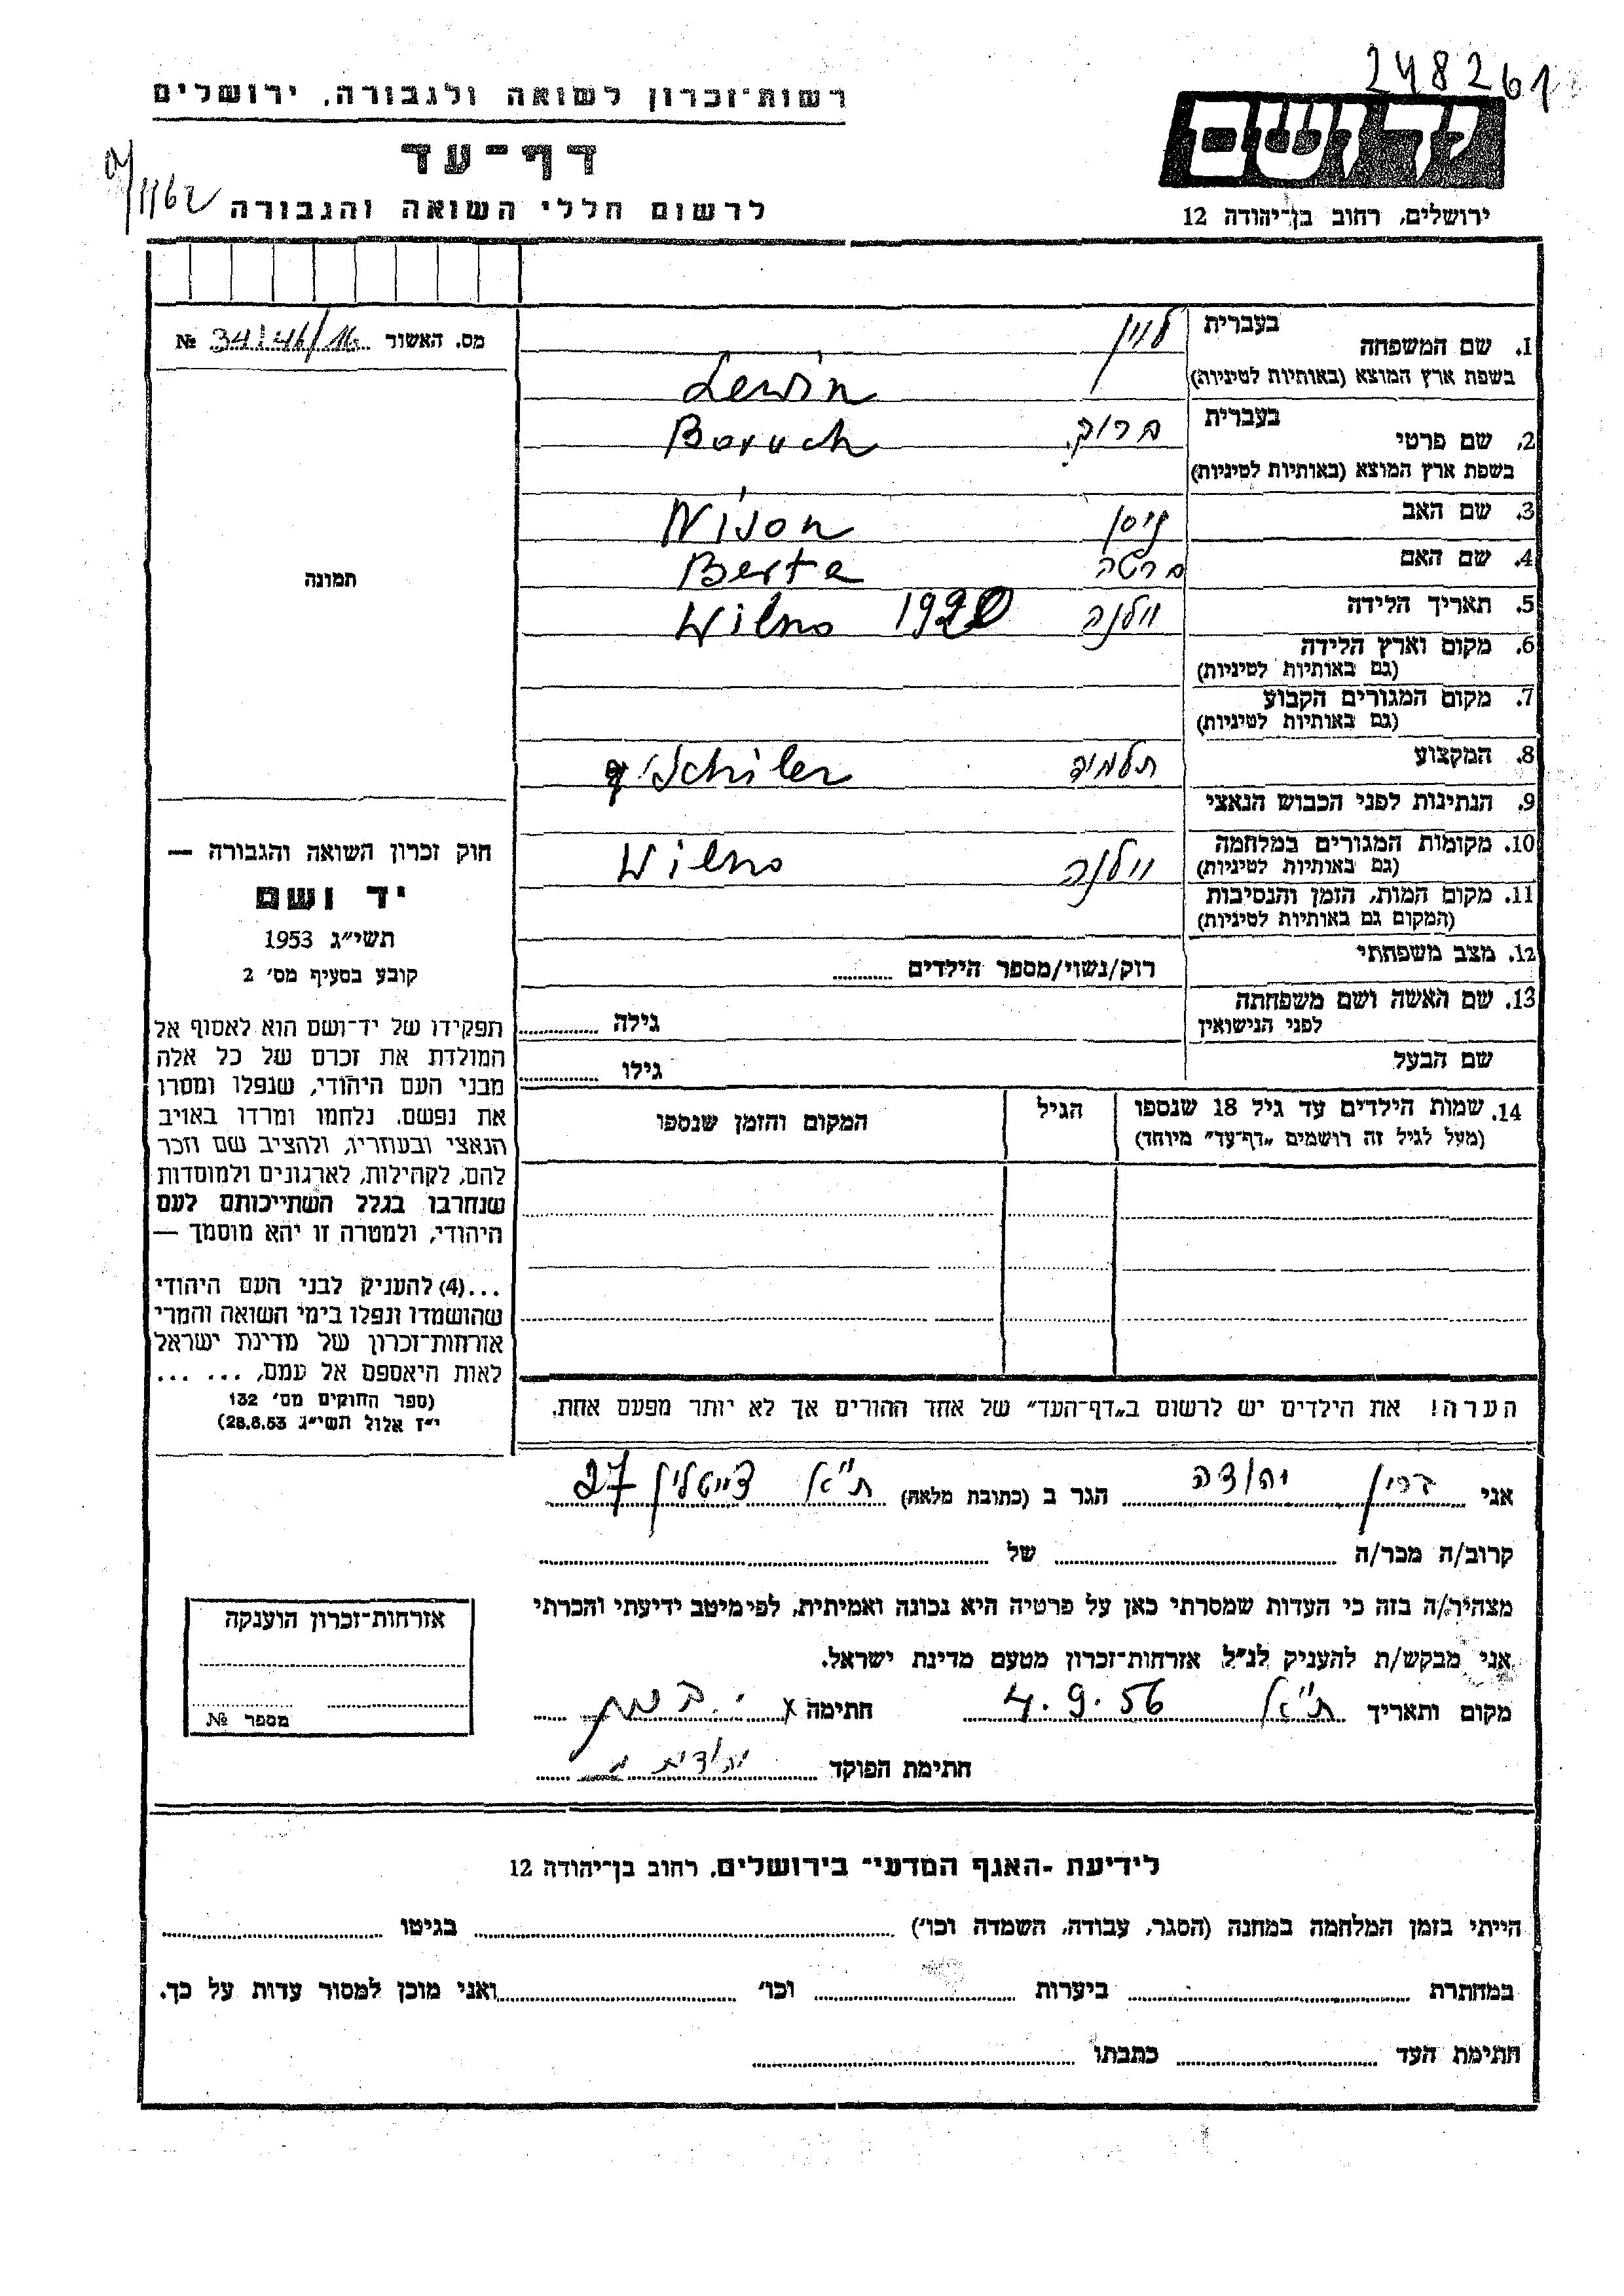 248261
רשות־זכרון לשואה ולגבורה, ירושלים
דף־עד
לרשום חללי השואה והגבורה
ירושלים, רחוב בן־יהודה 12
מס. האשור №
1. שם המשפחה בעברית לוין
בשפת ארץ המוצא (באותיות לטיניות) Lewin
2. שם פרטי בעברית ברוך Boruch
בשפת ארץ המוצא (באותיות לטיניות)
3. שם האב ניסן Nison
4. שם האם ברטה Berta
5. תאריך הלידה וילנה Wilno 1920
6. מקום וארץ הלידה
(גם באותיות לטיניות)
7. מקום המגורים הקבוע
(גם באותיות לטיניות)
8. המקצוע תלמיד Schiler
9. הנתינות לפני הכבוש הנאצי
10. מקומות המגורים במלחמה וילנה Wilno
(גם באותיות לטיניות)
11. מקום המות, הזמן והנסיבות
(המקום גם באותיות לטיניות)
12. מצב משפחתי רוק/נשוי/מספר הילדים
13. שם האשה ושם משפחתה
לפני הנישואין גילה
שם הבעל גילו
14. שמות הילדים עד גיל 18 שנספו הגיל המקום והזמן שנספו
(מעל לגיל זה רושמים „דף־עד” מיוחד)
תמונה
חוק זכרון השואה והגבורה —
יד ושם
תשי״ג 1953
קובע בסעיף מס׳ 2
תפקידו של יד־ושם הוא לאסוף אל
המולדת את זכרם של כל אלה
מבני העם היהודי, שנפלו ומסרו
את נפשם, נלחמו ומרדו באויב
הנאצי ובעוזריו, ולהציב שם וזכר
להם, לקהילות, לארגונים ולמוסדות
שנחרבו בגלל השתייכותם לעם
היהודי, ולמטרה זו יהא מוסמך —
...(4) להעניק לבני העם היהודי
שהושמדו ונפלו בימי השואה והמרי
אזרחות־זכרון של מדינת ישראל
לאות היאספם אל עמם, ... ...
(ספר החוקים מס׳ 132
י״ז אלול תשי״ג 28.8.53)
הערה! את הילדים יש לרשום ב„דף־העד” של אחד ההורים אך לא יותר מפעם אחת.
אני יהודה הגר ב (כתובת מלאה) ת״א צייטלין 27
קרוב/ה מכר/ה של
מצהיר/ה בזה כי העדות שמסרתי כאן על פרטיה היא נכונה ואמיתית, לפי מיטב ידיעתי והכרתי
אני מבקש/ת להעניק לנ״ל אזרחות־זכרון מטעם מדינת ישראל.
מקום ותאריך ת״א 4.9.56 חתימה x
חתימת הפוקד
אזרחות־זכרון הוענקה
מספר №
לידיעת ־האגף המדעי־ בירושלים, רחוב בן־יהודה 12
הייתי בזמן המלחמה במחנה (הסגר, עבודה, השמדה וכו׳) בגיטו
במחתרת ביערות וכו׳ ואני מוכן למסור עדות על כך.
חתימת העד כתבתו